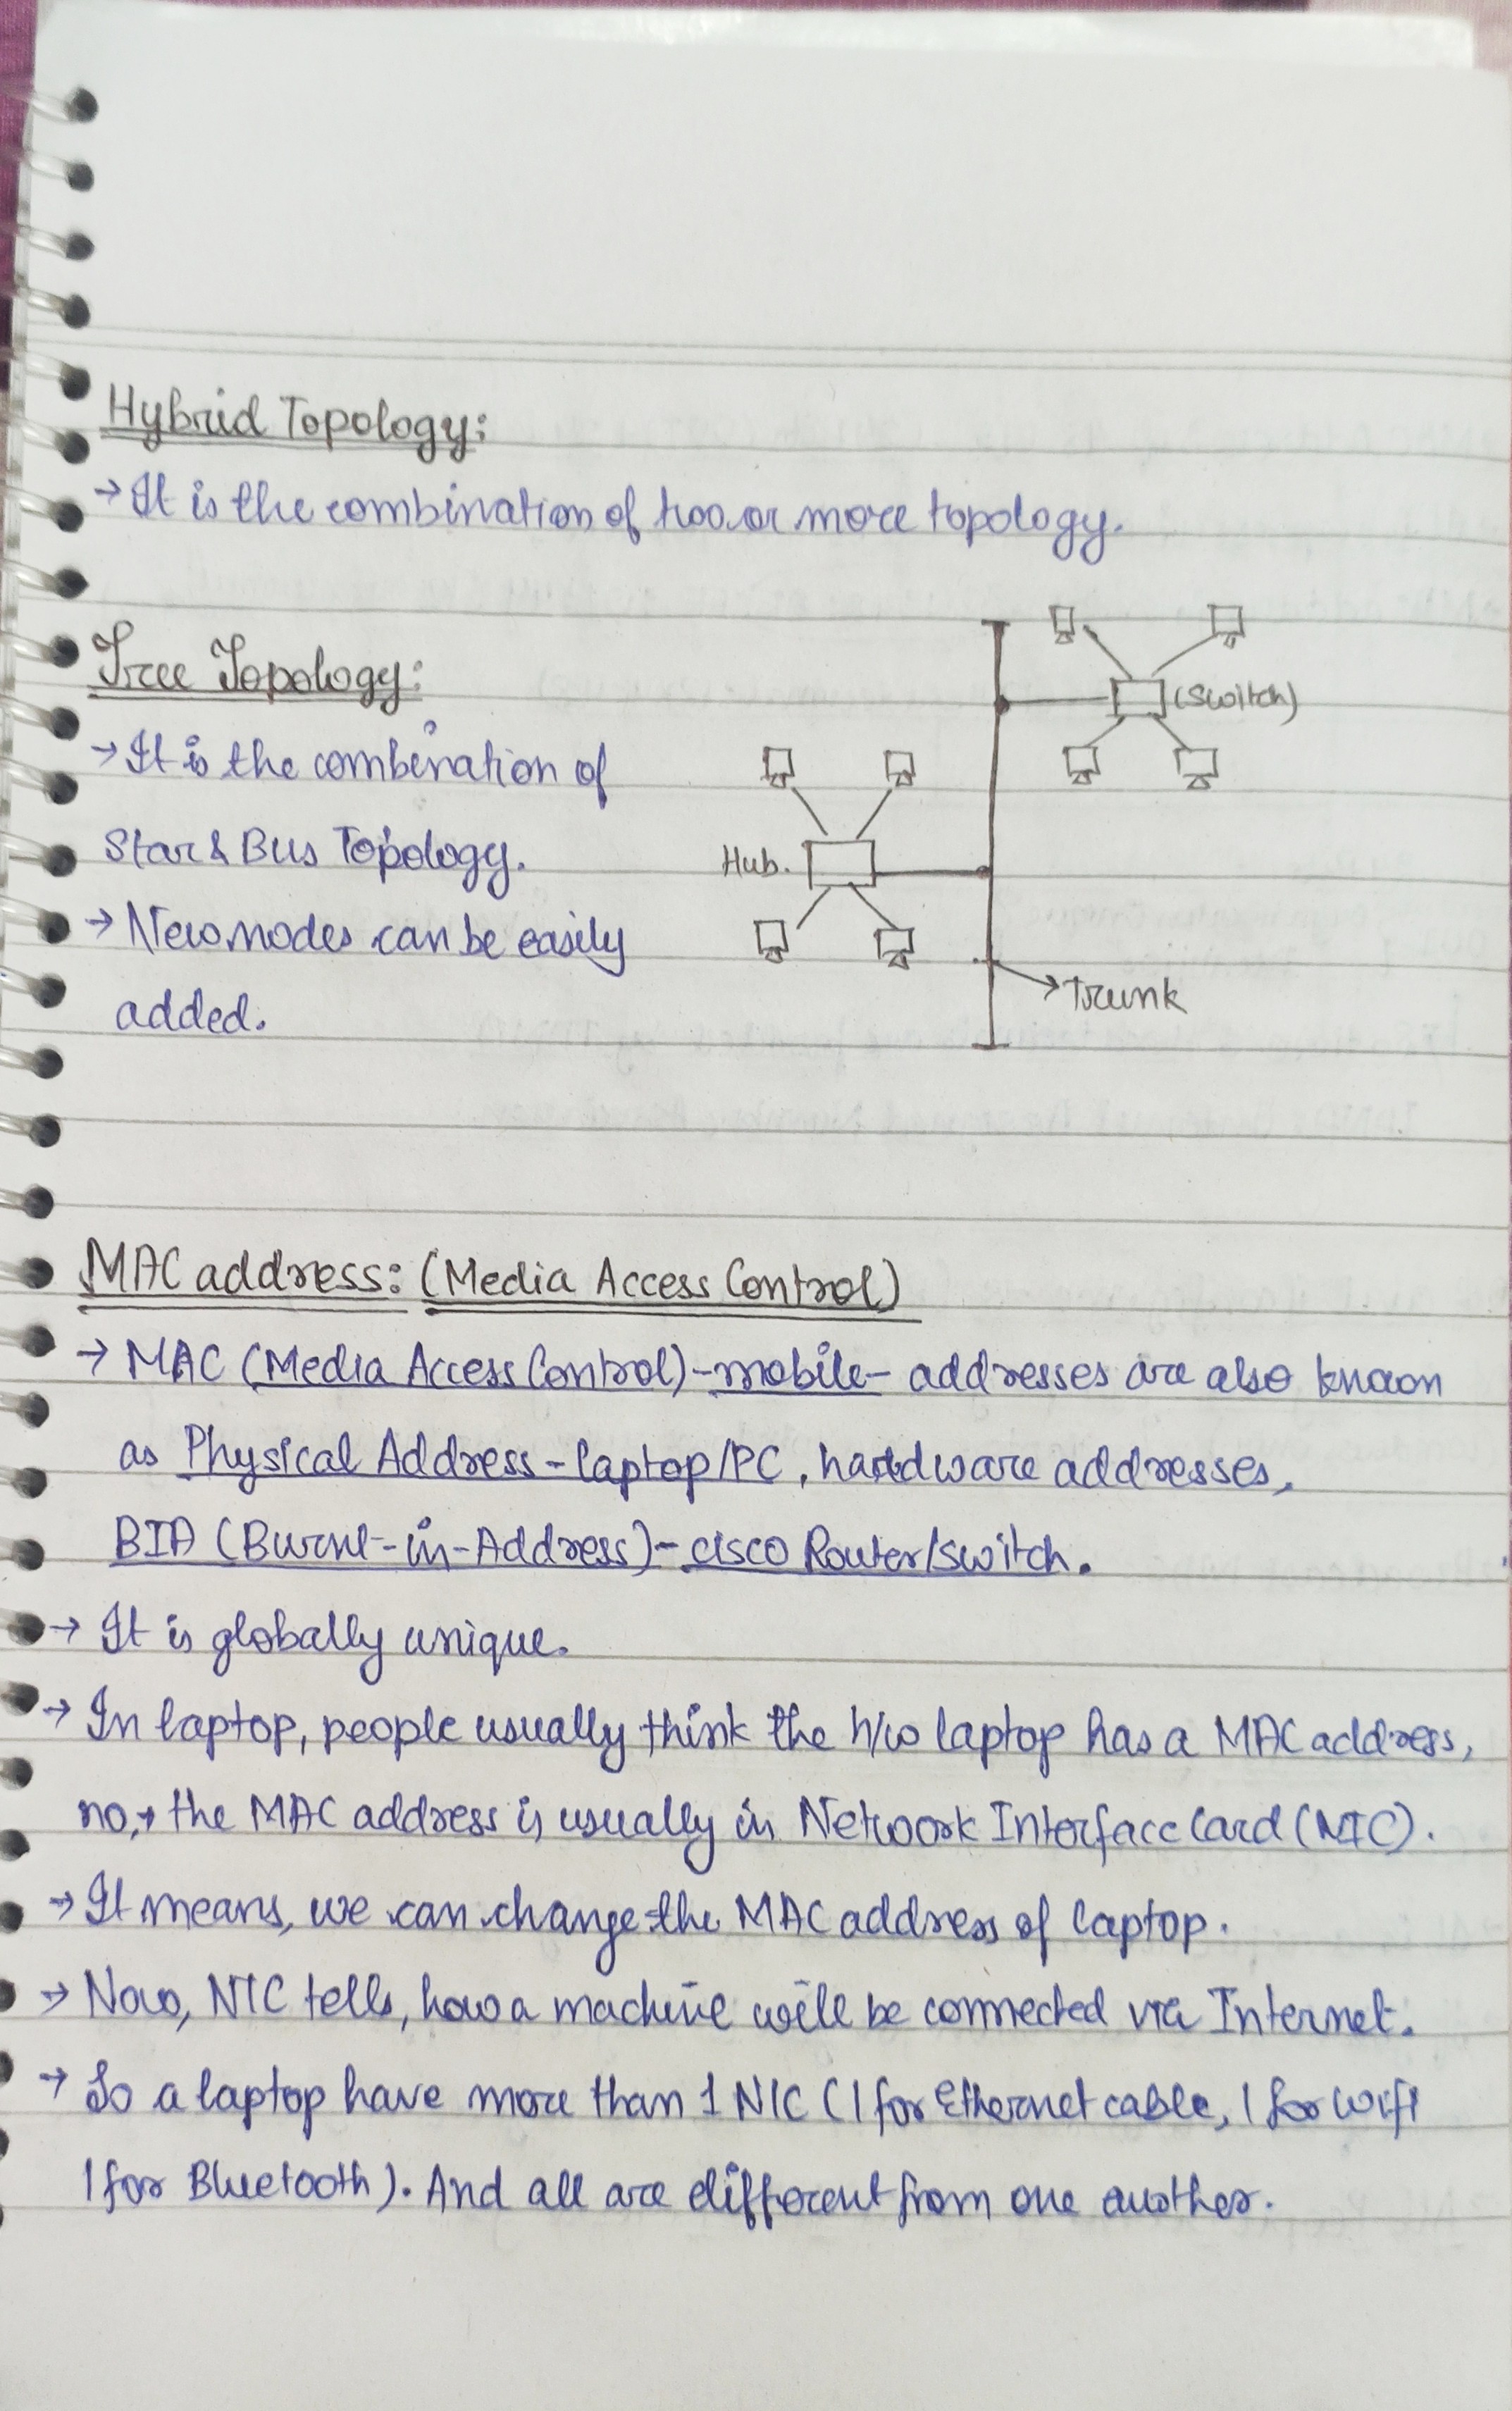 Hybrid Topology:
→ It is the combination of two or more topology.
Tree Topology:
→ It is the combination of
Star & Bus Topology.
→ New nodes can be easily
added.
(Switch)
Hub.
Trunk
MAC address: (Media Access Control)
→ MAC (Media Access Control)-mobile- addresses are also known
as Physical Address - laptop/PC, hardware addresses,
BIA (Burnt-in-Address)- cisco Router/switch.
→ It is globally unique.
→ In laptop, people usually think the h/w laptop has a MAC address,
no, → the MAC address is usually in Network Interface Card (NIC).
→ It means, we can change the MAC address of laptop.
→ Now, NIC tells, how a machine will be connected via Internet.
→ So a laptop have more than 1 NIC (1 for Ethernet cable, 1 for wifi
1 for Bluetooth). And all are different from one another.